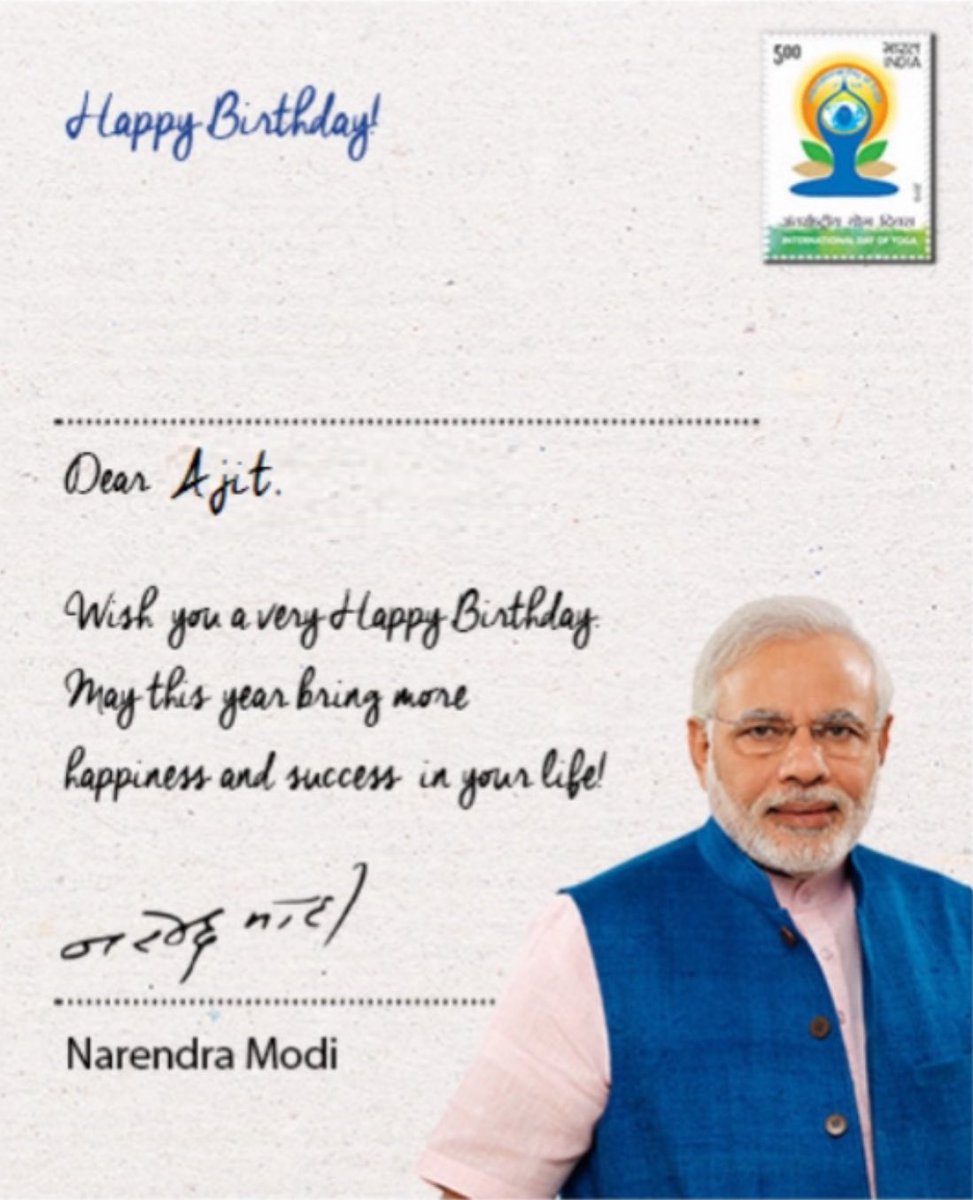 Happy Birthday!
5.00
भारत
INDIA
अंतर्राष्ट्रीय योग दिवस
INTERNATIONAL DAY OF YOGA
Dear Ajit.
Wish you a very Happy Birthday.
May this year bring more
happiness and success in your life!
नरेन्द्र मोदी
Narendra Modi